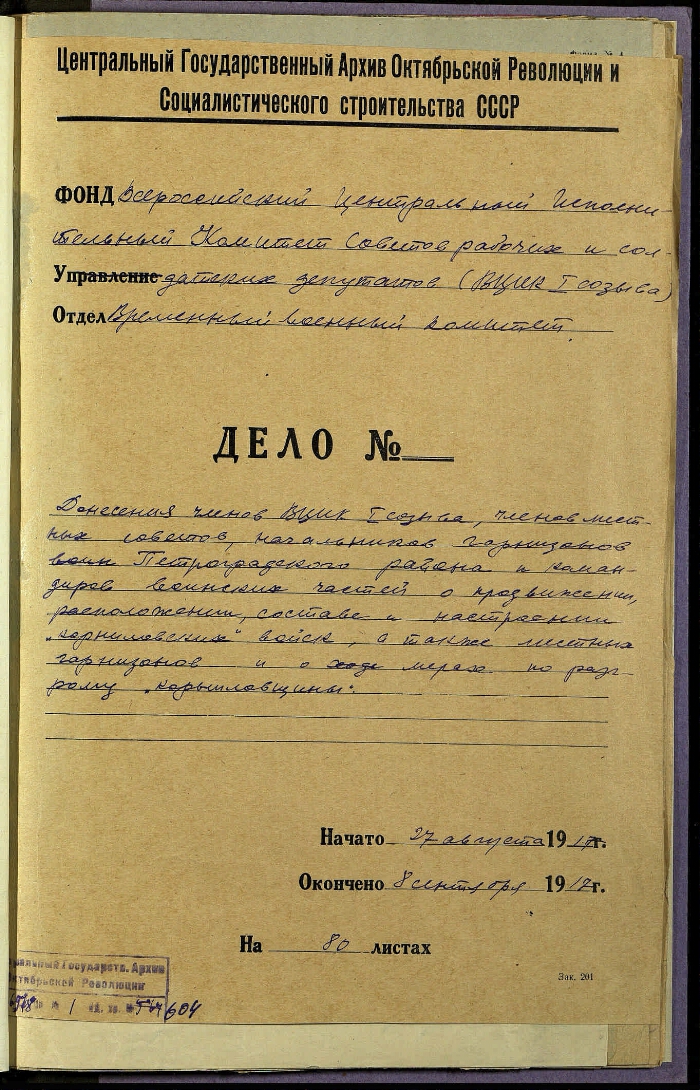 Центральный Государственный Архив Октябрьской Революции и
Социалистического строительства СССР
ФОНД Всероссийский Центральный Исполни-
тельный Комитет Советов рабочих и сол-
Управление датских депутатов (ВЦИК I созыва)
Отдел Временный военный комитет.
ДЕЛО №
Донесения членов ВЦИК I созыва, членов мест-
ных советов, начальников гарнизонов
воин Петроградского района и коман-
диров воинских частей о продвижении,
расположении, составе и настроении
„корниловских" войск, а также местных
гарнизонов и о ходе мерах по разг-
рому „корниловщины".
Начато 27 августа 1917г.
Окончено 8 сентября 1917г.
На 80 листах
Зак. 201
Государств. Архив
Октябрьской Революции
1
604